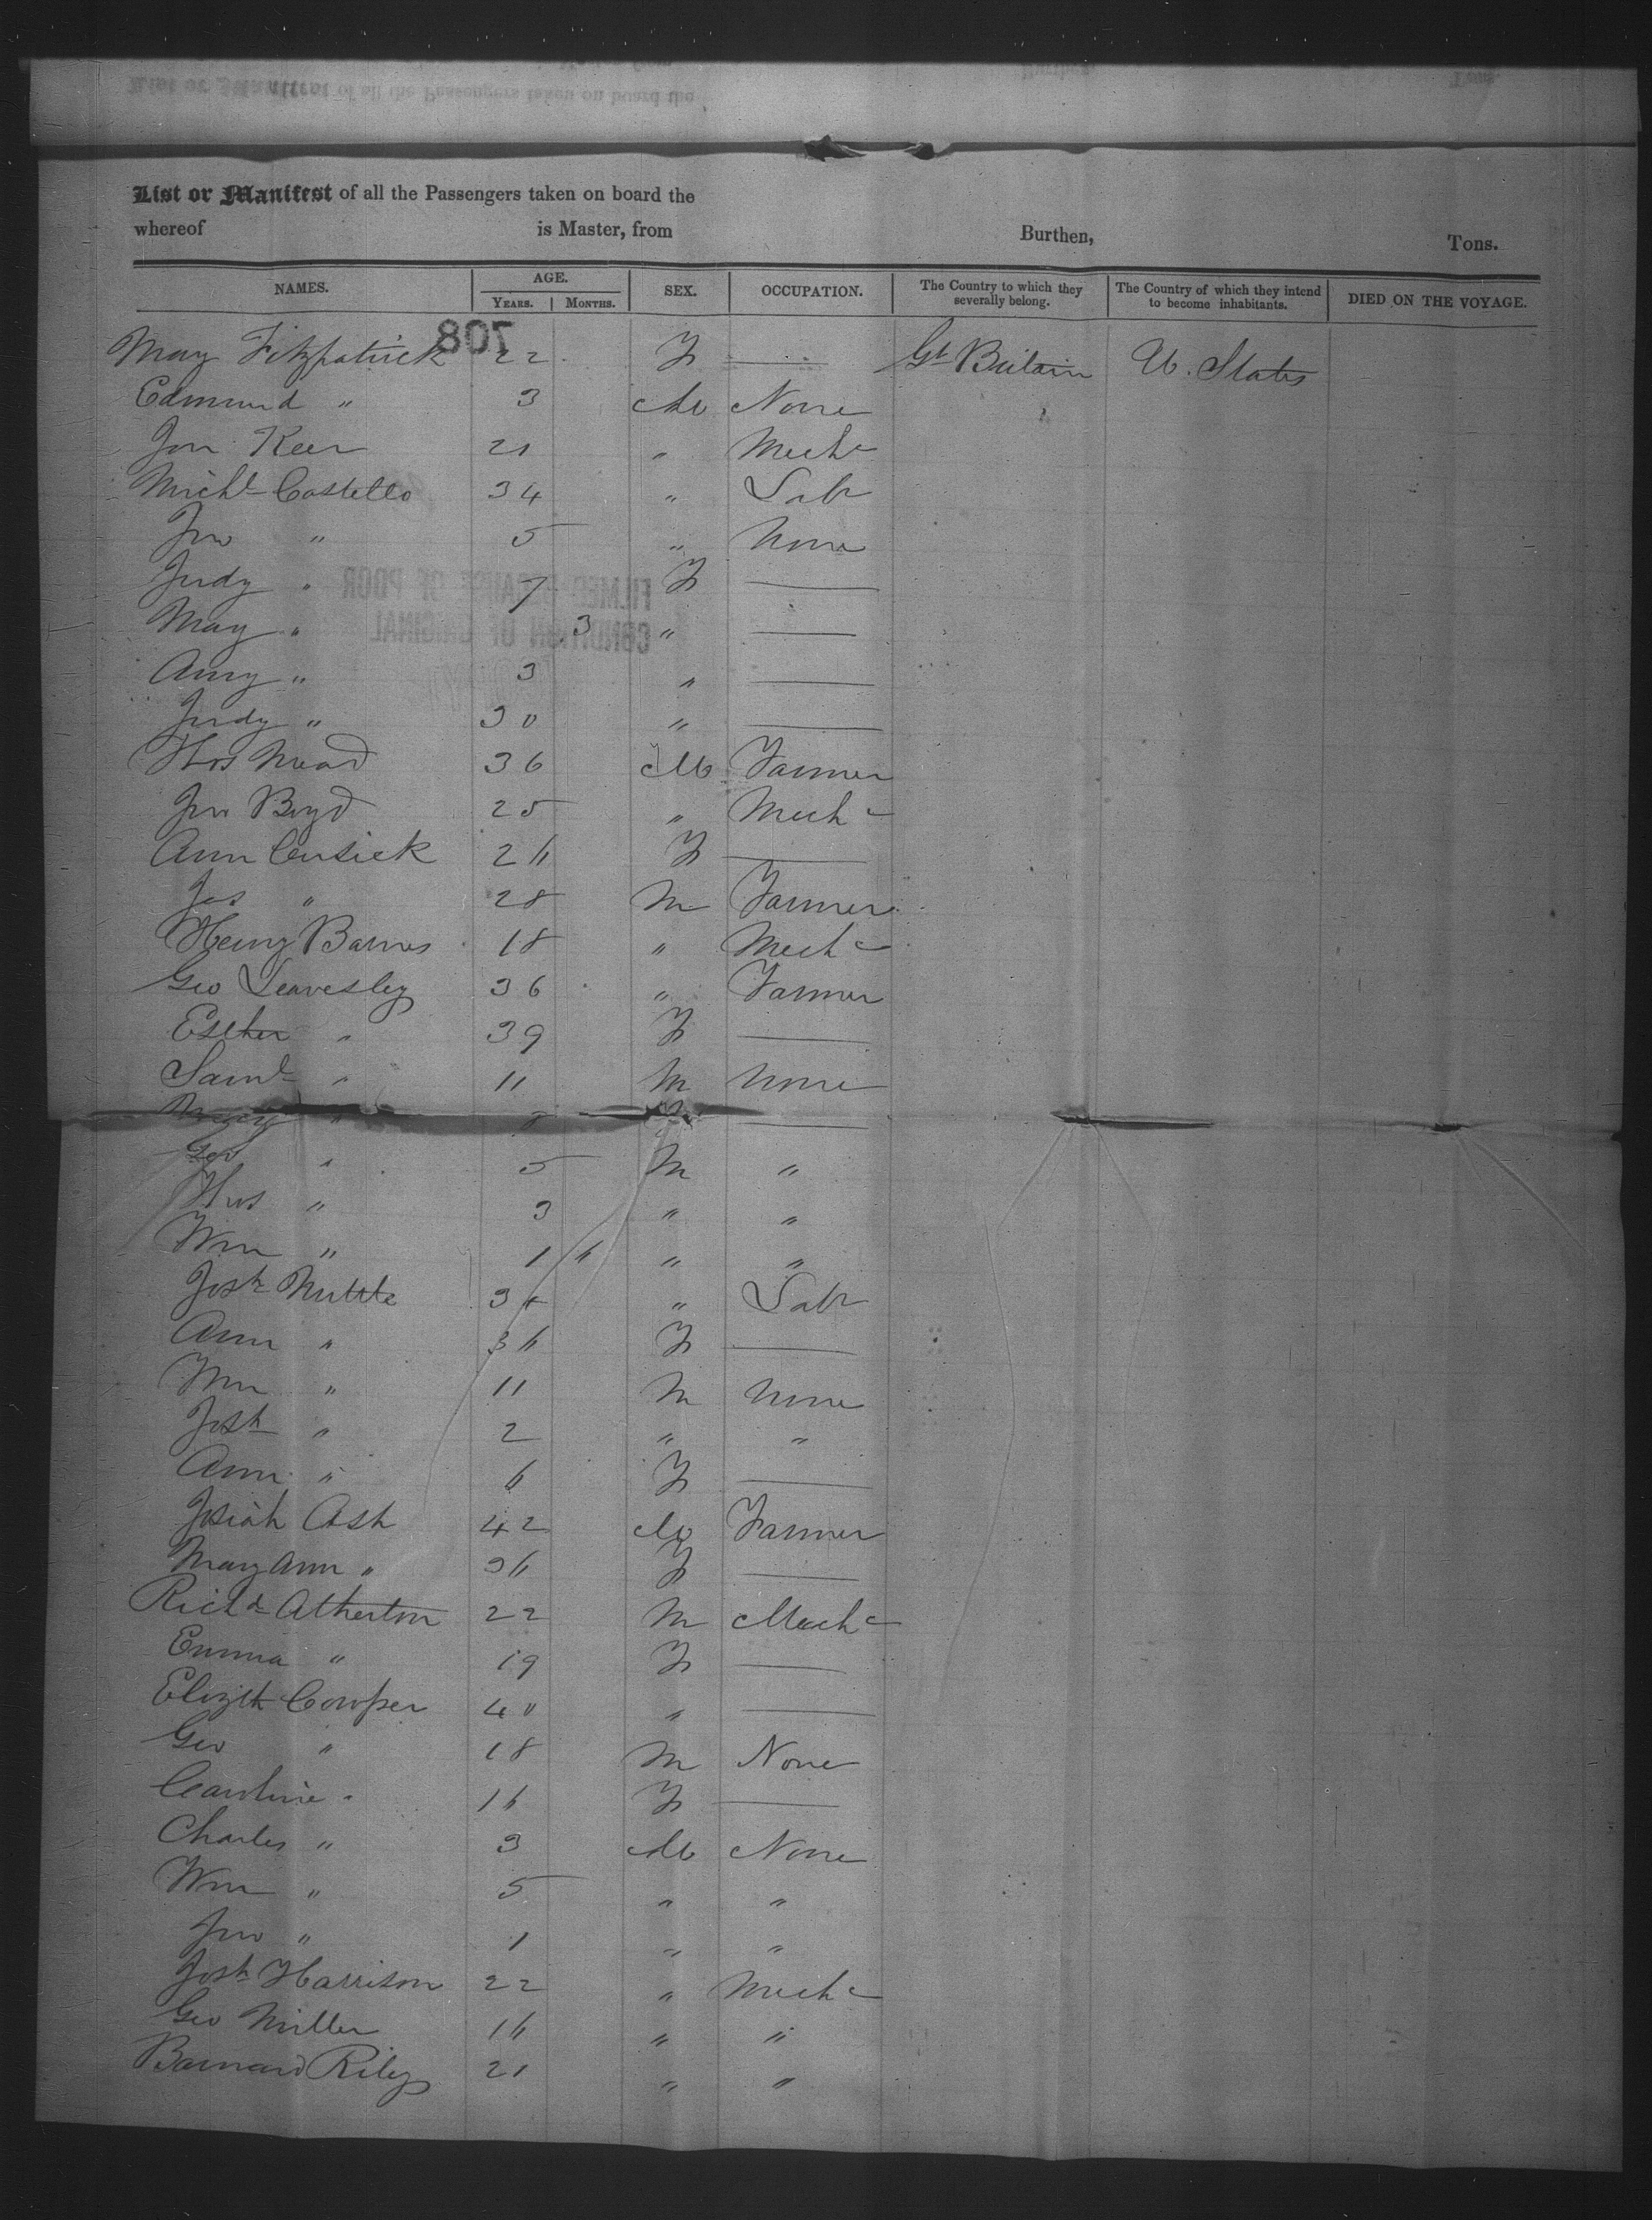 List or Manifest of all the Passengers taken on board the
whereof is Master, from Burthen, Tons.
NAMES. AGE. YEARS. MONTHS. SEX. OCCUPATION. The Country to which they severally belong. The Country of which they intend to become inhabitants. DIED ON THE VOYAGE.
708
Mary Fitzpatrick 22 F — Gt Britain U. States
Edmund " 3 M None
Jon Keer 21 " Mechc
Michl Costello 34 " Labr
Jno " 5 " None
Judy " 7 F —
Mary " 3 " —
FILMED BECAUSE OF POOR
CONDITION OF ORIGINAL
Amy " 3 " —
Judy " 30 " —
Thos Mead 36 M Farmer
Jno Boyd 25 " Mechc
Ann Cusick 26 F —
Jas " 28 M Farmer
Henry Barnes 18 " Mechc
Geo Leavesley 36 " Farmer
Esther " 39 F —
Saml " 11 M None
Mary " F —
Geo " 5 M "
Thos " 3 " "
Wm " 1 6 " "
Josh Nuttle 34 " Labr
Ann " 36 F —
Wm " 11 M None
Josh " 2 " "
Ann " 6 F —
Josiah Ash 42 M Farmer
Mary Ann " 36 F —
Richd Atherton 22 M Mechc
Emma " 19 F —
Elizth Cowper 40 " —
Geo " 18 M None
Caroline " 16 F —
Charles " 3 M None
Wm " 5 " "
Jno " 1 " "
Josh Harrison 22 " Mechc
Geo Miller 16 " "
Barnard Riley 21 " "